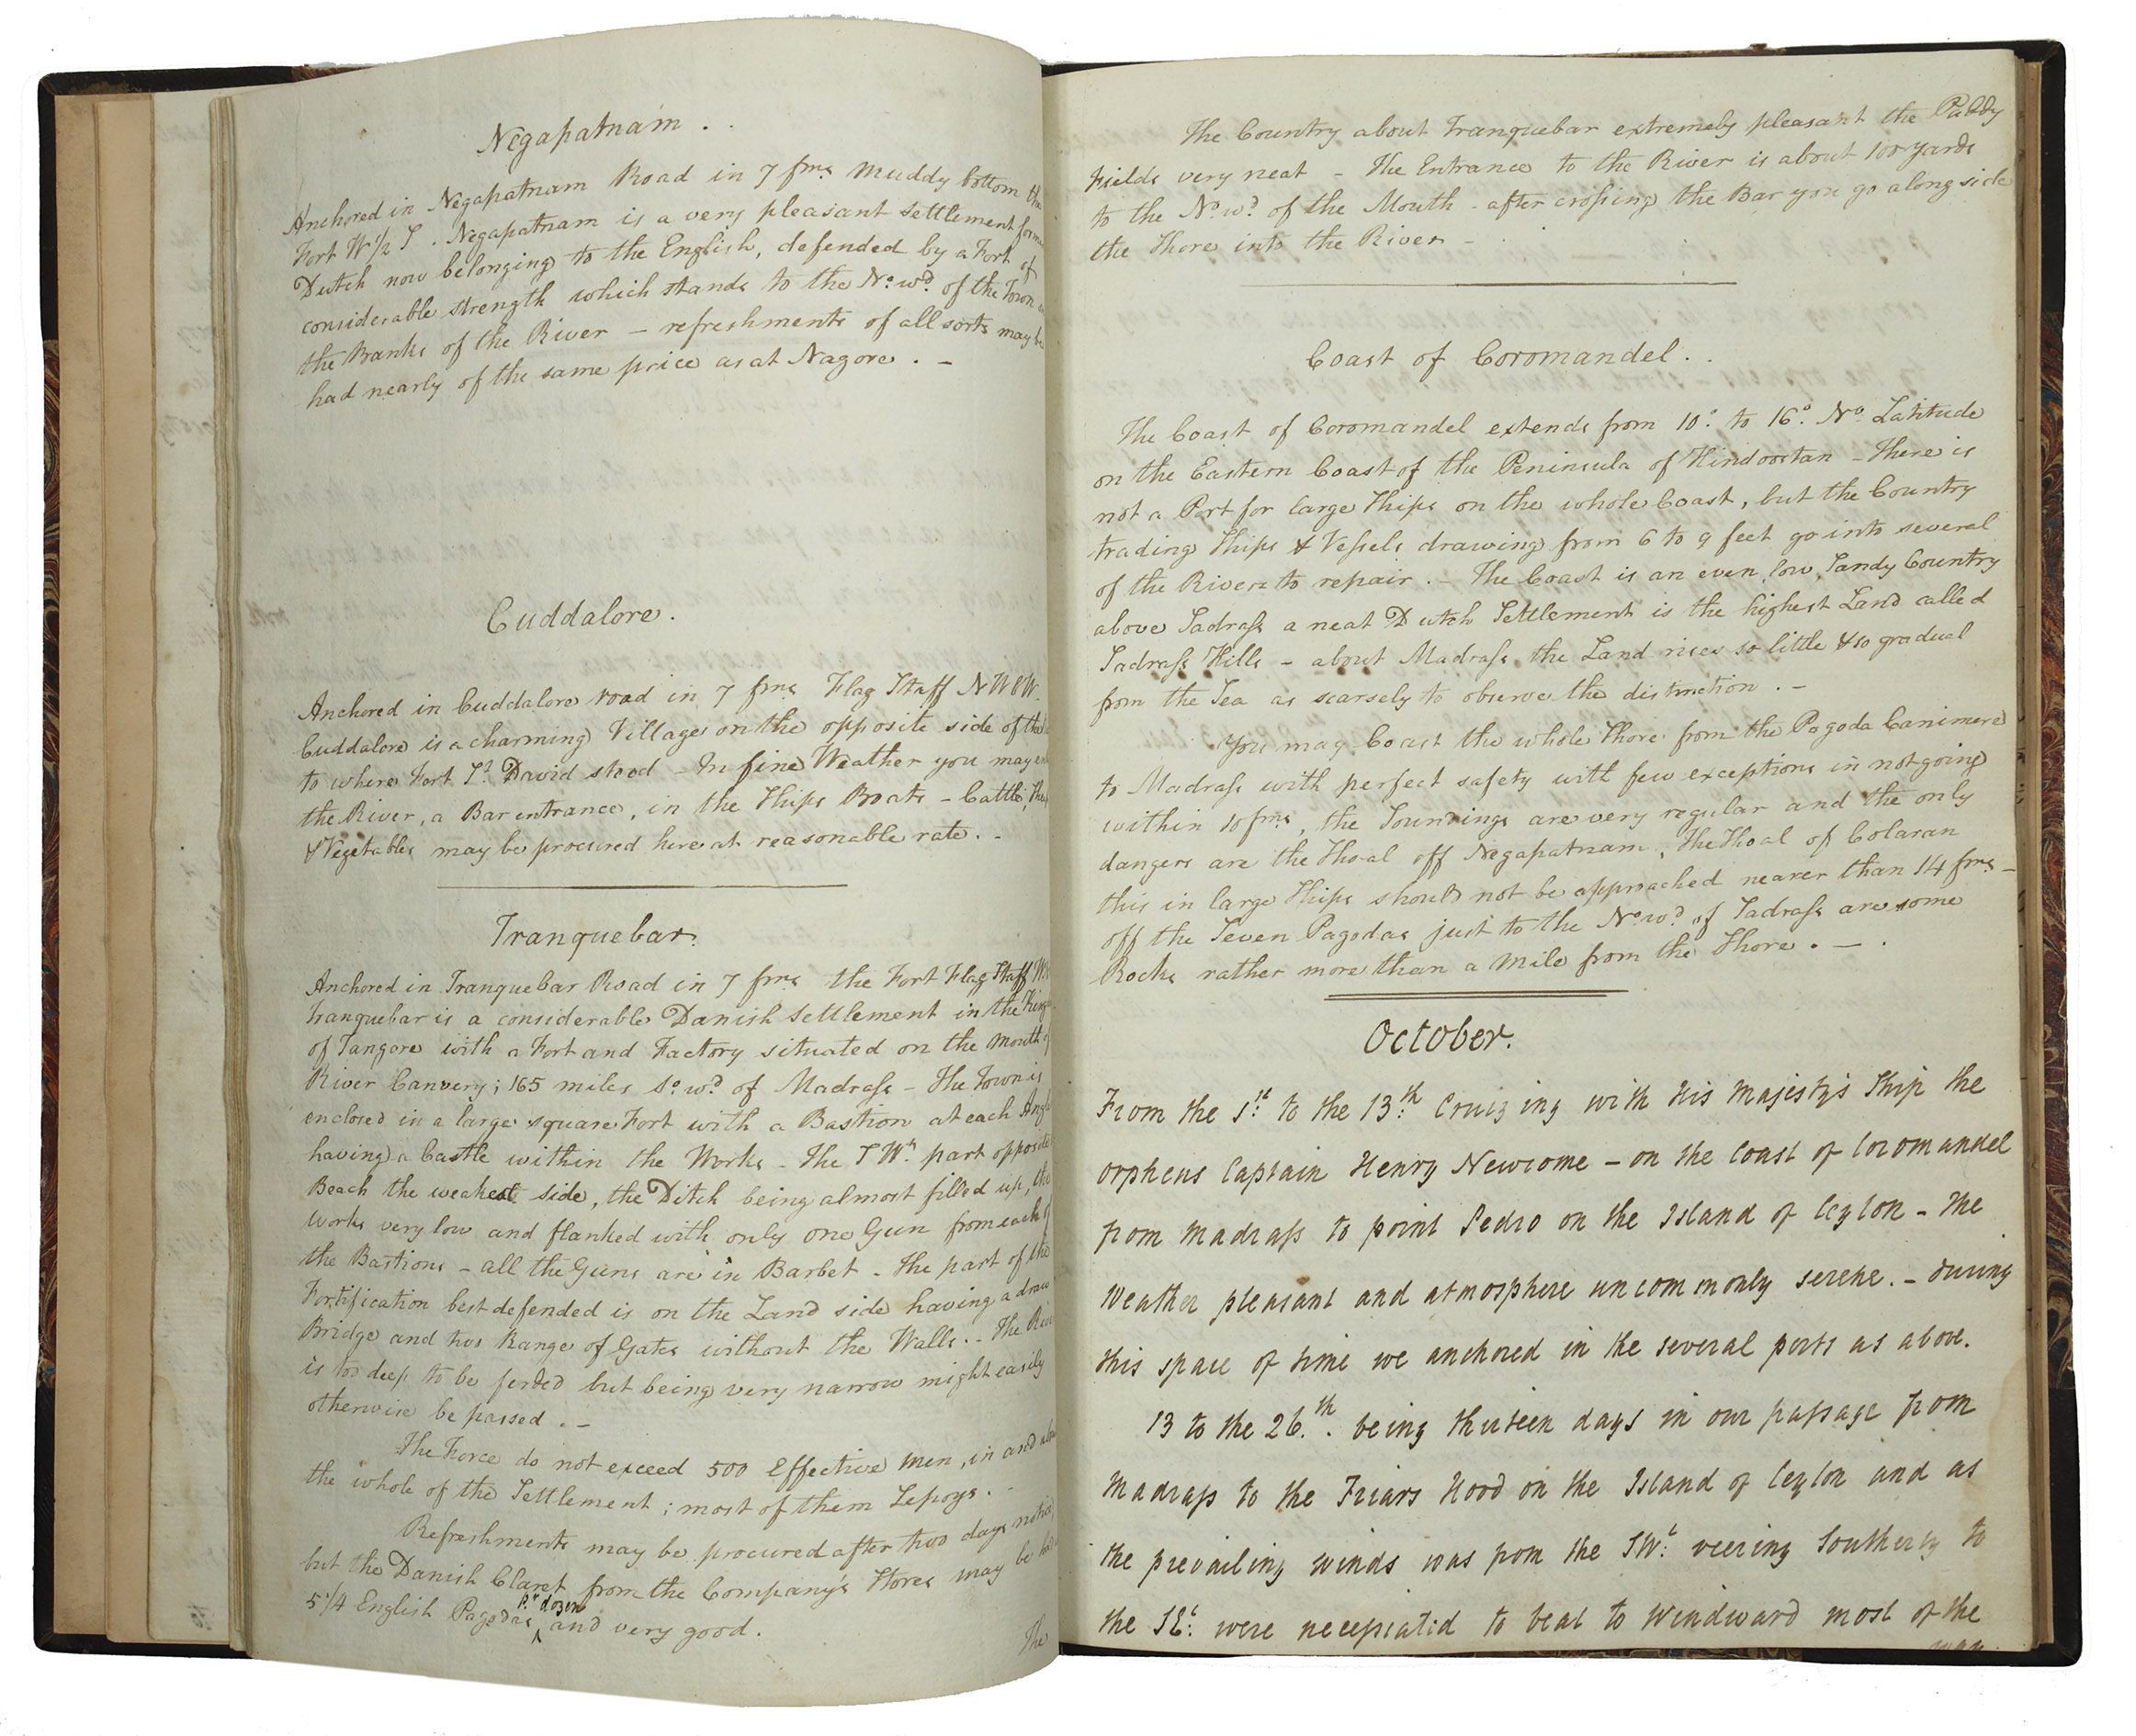 Negapatnam . .
Anchored in Negapatnam Road in 7 fms. Muddy bottom the
Fort W 1/2 S . Negapatnam is a very pleasant settlement form
Dutch now belonging to the English, defended by a Fort of
considerable strength which stands to the No. wd. of the Town
the Banks of the River – refreshments of all sorts may be
had nearly of the same price as at Nagore . –
Cuddalore.
Anchored in Cuddalore road in 7 fms Flag Staff N W 8 W.
Cuddalore is a charming Village on the opposite side of the
to where Fort St. David stood – In fine Weather you may
the River, a Bar entrance, in the Ships Boats – Cattle,
& Vegetables may be procured here at reasonable rate. -
Tranquebar.
Anchored in Tranquebar Road in 7 fms the Fort Flag Staff
Tranquebar is a considerable Danish Settlement in the King
of Tangore with a Fort and Factory situated on the Mouth of
River Canvery; 165 miles So. wd. of Madrass – The Town is
enclosed in a large square Fort with a Bastion at each Angle
having a Castle within the Works – The S Wn. part opposite
Beach the weakest side, the Ditch being almost filled up, the
Works very low and flanked with only one Gun from each of
the Bastions – all the Guns are in Barbet – The part of the
Fortification best defended is on the Land side having a draw
Bridge and two Range of Gates without the Walls. – The Riv
is too deep to be forded but being very narrow might easily
otherwise be passed . –
The Force do not exceed 500 Effective Men, in and
the whole of the Settlement ; most of them Sepoys. -
Refreshments may be procured after two days notice,
but the Danish Claret from the Company's Stores may be
5 1/4 English Pagodas ^ pr. dozen and very good.
The
The Country about Tranquebar extremely pleasant the Paddy
Fields very neat – The Entrance to the River is about 100 yards
to the No. wd. of the Mouth – after crossing the Bar you go along side
the Shore into the River –
Coast of Coromandel . .
The Coast of Coromandel extends from 10° to 16° No. Latitude
on the Eastern Coast of the Peninsula of Hindoostan – There is
not a Port for large Ships on the whole Coast, but the Country
trading Ships & Vessels drawing from 6 to 9 feet go into several
of the Rivers to repair . – The Coast is an even, low, Sandy Country
above Sadrass a neat Dutch Settlement is the highest Land called
Sadrass Hills – about Madrass the Land rises so little & so gradual
from the Sea as scarsely to observe the distinction . –
You may Coast the whole Shore from the Pagoda Canimere
to Madrass with perfect safety with few exceptions in not going
within 10 fms, the Soundings are very regular and the only
dangers are the Shoal off Negapatnam, The Shoal of Colaran
this in large Ships should not be approached nearer than 14 fms –
off the Seven Pagodas just to the No. wd. of Sadrass are some
Rocks rather more than a Mile from the Shore . – .
October.
From the 1st. to the 13th. Cruizing with His Majesty's Ship the
Orpheus Captain Henry Newcome – on the Coast of Coromandel
from Madrass to point Pedro on the Island of Ceylon – The
Weather pleasant and atmosphere uncommonly serene. – During
this space of time we anchored in the several ports as above.
13 to the 26th. being thirteen days in our passage from
Madrass to the Friars Hood on the Island of Ceylon and as
the prevailing winds was from the SWt. veering Southerly to
the SEt. were necessiated to beat to Windward most of the
way